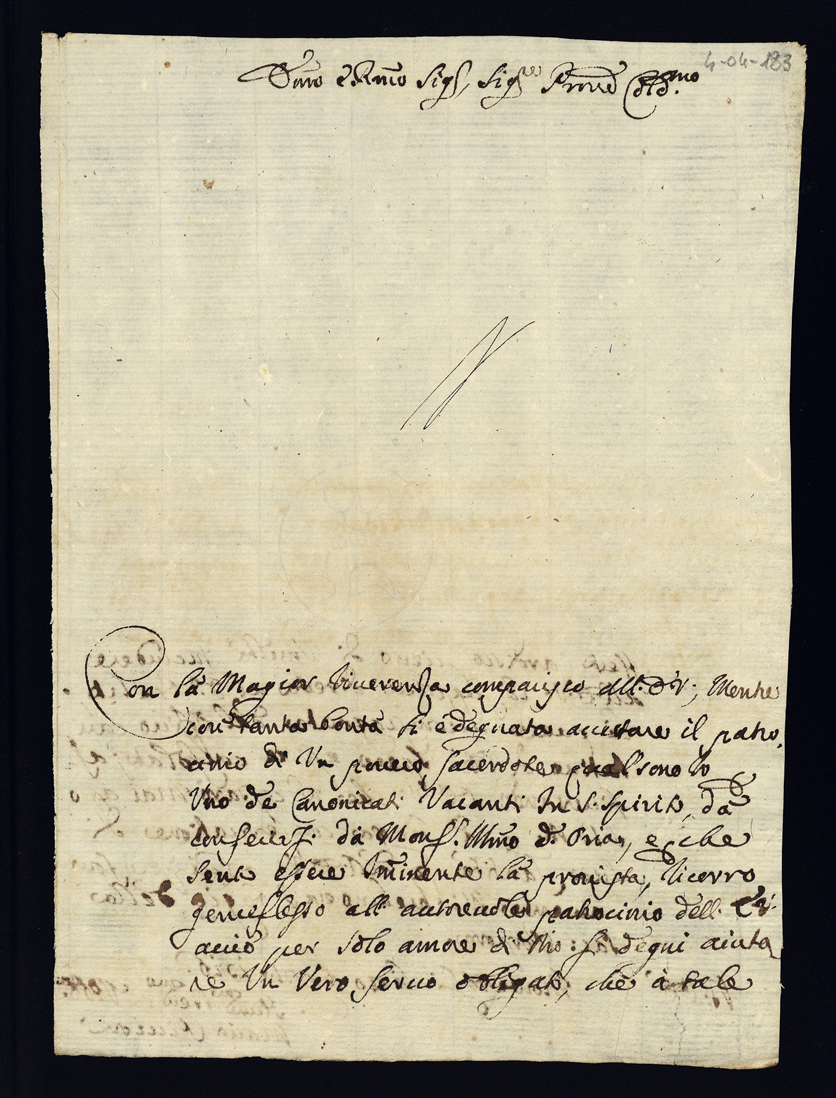 4-04-183
e Rmo Sigr, Sigre Prone
Con la Magior riverenza comparisco all. E.V., Mentre
con tanta bontà si è degnata accettare il patro,
cinio di Un povero sacerdote qual sono Io
Uno de Canonicati Vacanti In S. Spirito, da
da Monsr. Illmo di e, che
sento essere Imminente la provista, ricorro
all. autorevole patrocinio dell. E.V.
acciò per solo amore di Dio si degni aiuta
re Un Vero servo obligato, che à tale